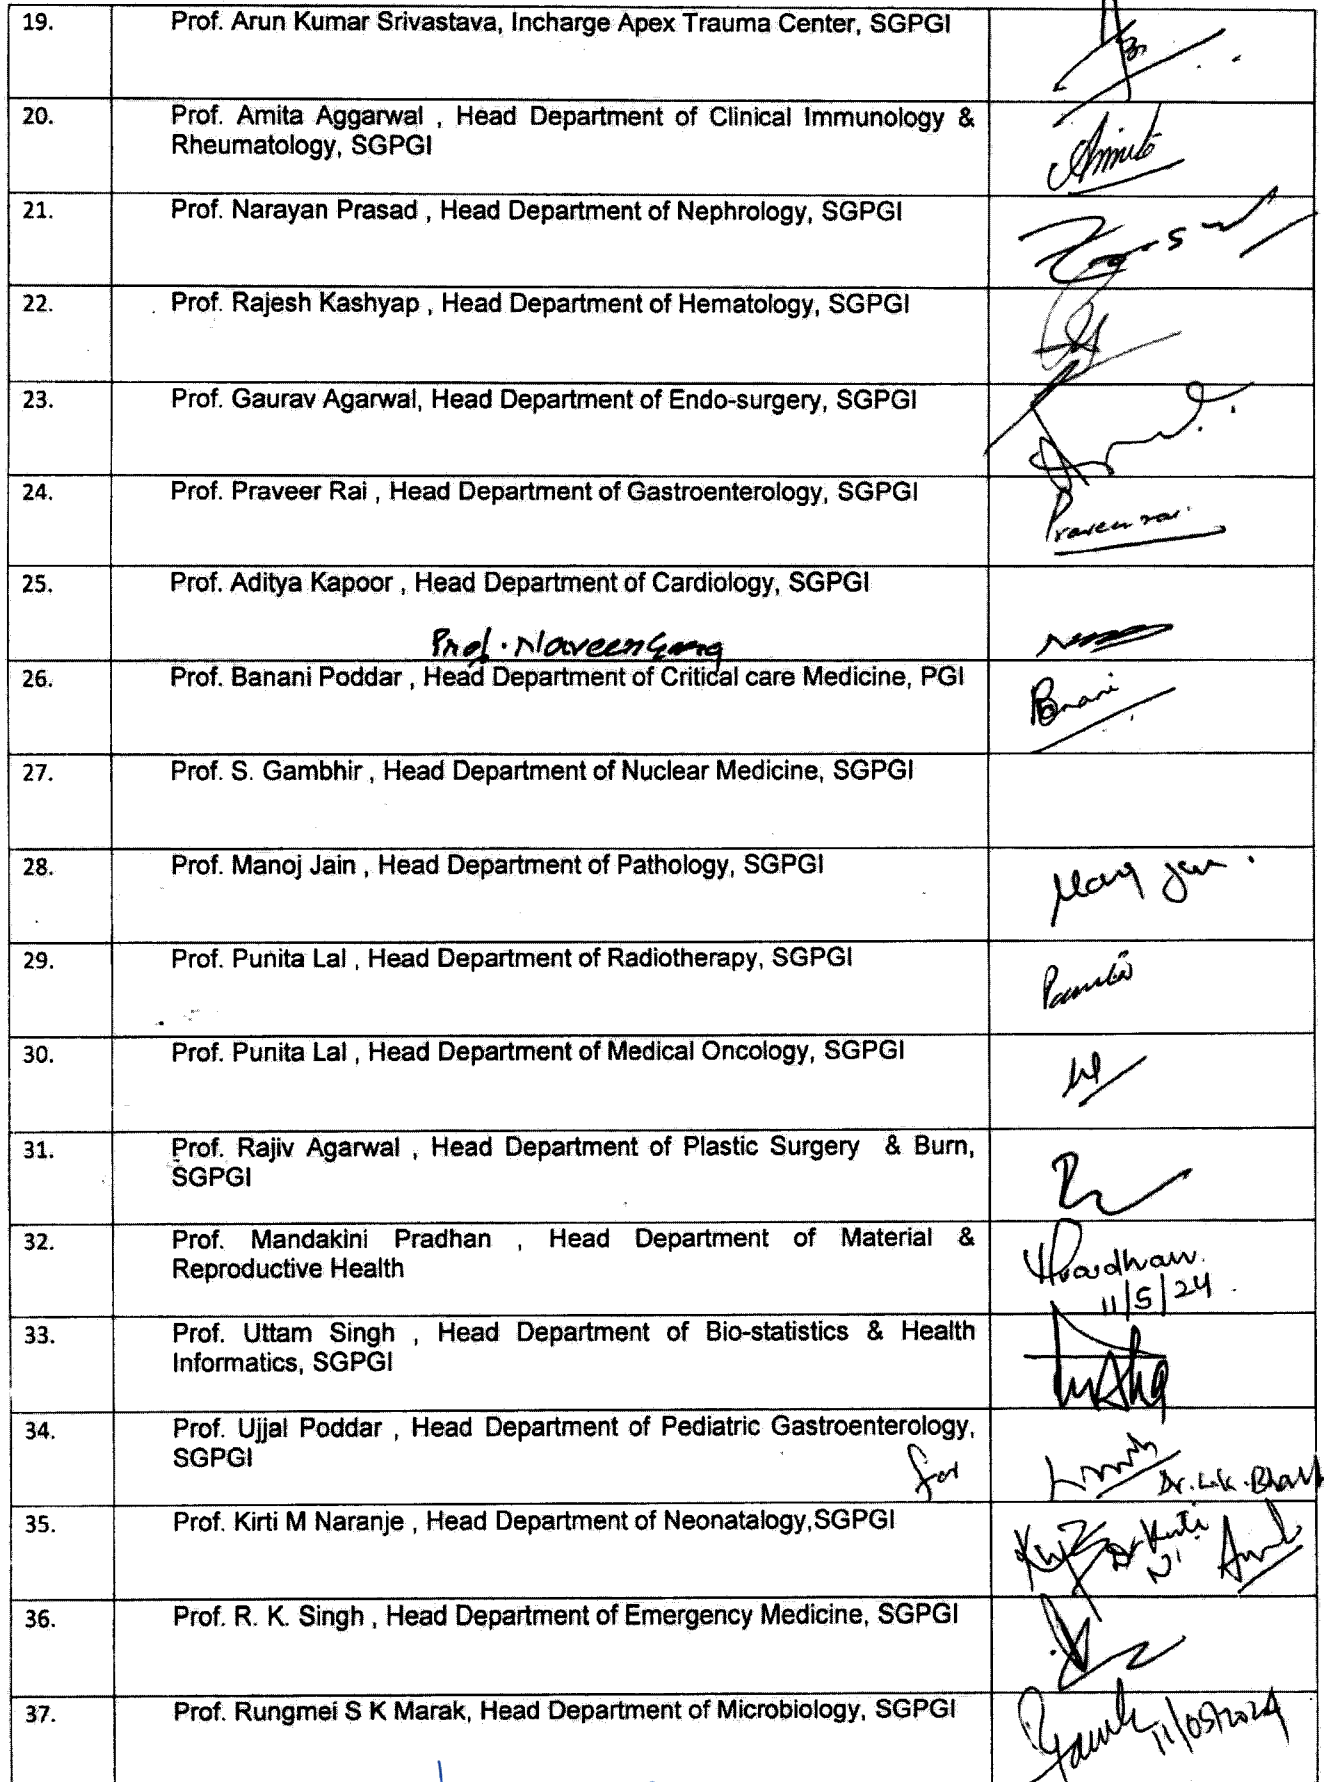 19. Prof. Arun Kumar Srivastava, Incharge Apex Trauma Center, SGPGI
20. Prof. Amita Aggarwal , Head Department of Clinical Immunology & Amita
Rheumatology, SGPGI
21. Prof. Narayan Prasad , Head Department of Nephrology, SGPGI
22. Prof. Rajesh Kashyap , Head Department of Hematology, SGPGI
23. Prof. Gaurav Agarwal, Head Department of Endo-surgery, SGPGI
24. Prof. Praveer Rai , Head Department of Gastroenterology, SGPGI
Praveer rai
25. Prof. Aditya Kapoor , Head Department of Cardiology, SGPGI
Prof. Naveen Garg
26. Prof. Banani Poddar , Head Department of Critical care Medicine, PGI
Banani
27. Prof. S. Gambhir , Head Department of Nuclear Medicine, SGPGI
28. Prof. Manoj Jain , Head Department of Pathology, SGPGI
Manoj Jain
29. Prof. Punita Lal , Head Department of Radiotherapy, SGPGI
Punita
30. Prof. Punita Lal , Head Department of Medical Oncology, SGPGI
31. Prof. Rajiv Agarwal , Head Department of Plastic Surgery & Burn,
SGPGI
32. Prof. Mandakini Pradhan , Head Department of Material &
Reproductive Health
Pradhan
11/5/24
33. Prof. Uttam Singh , Head Department of Bio-statistics & Health
Informatics, SGPGI
34. Prof. Ujjal Poddar , Head Department of Pediatric Gastroenterology,
SGPGI
for Dr. L.K. Bharti
35. Prof. Kirti M Naranje , Head Department of Neonatalogy,SGPGI
Dr Kirti
N
36. Prof. R. K. Singh , Head Department of Emergency Medicine, SGPGI
37. Prof. Rungmei S K Marak, Head Department of Microbiology, SGPGI
11/05/2024